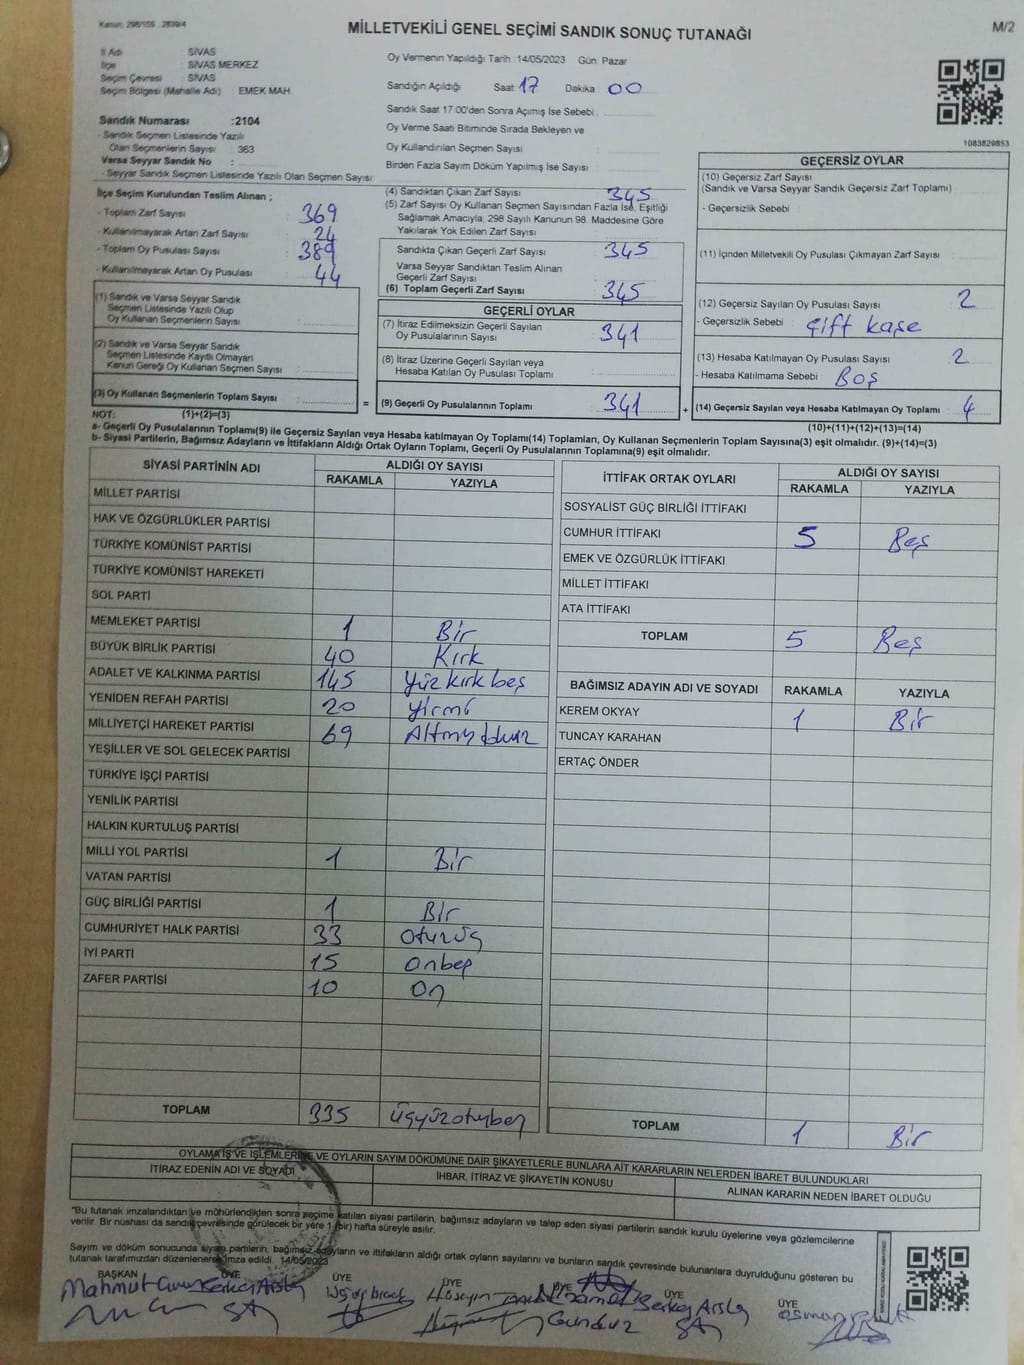 Kanun: 298/105 , 2839/4
MİLLETVEKİLİ GENEL SEÇİMİ SANDIK SONUÇ TUTANAĞI
M/2
İl Adı SİVAS
İlçe SİVAS MERKEZ
Seçim Çevresi SİVAS
Seçim Bölgesi (Mahalle Adı) : EMEK MAH.
Oy Vermenin Yapıldığı Tarih: 14/05/2023 Gün: Pazar
Sandığın Açıldığı Saat: 17 Dakika : 00
Sandık Saat 17:00'den Sonra Açımış İse Sebebi :
Oy Verme Saati Bitiminde Sırada Bekleyen ve
Oy Kullandırılan Seçmen Sayısı :
Birden Fazla Sayım Döküm Yapılmış İse Sayısı :
1083829853
Sandık Numarası :2104
- Sandık Seçmen Listesinde Yazılı
Olan Seçmenlerin Sayısı : 363
Varsa Seyyar Sandık No :
- Seyyar Sandık Seçmen Listesinde Yazılı Olan Seçmen Sayısı:
İlçe Seçim Kurulundan Teslim Alınan ;
- Toplam Zarf Sayısı : 369
- Kullanılmayarak Artan Zarf Sayısı : 24
- Toplam Oy Pusulası Sayısı : 389
- Kullanılmayarak Artan Oy Pusulası : 44
(1) Sandık ve Varsa Seyyar Sandık
Seçmen Listesinde Yazılı Olup
Oy Kullanan Seçmenlerin Sayısı :
(2) Sandık ve Varsa Seyyar Sandık
Seçmen Listesinde Kayıtlı Olmayan
Kanun Gereği Oy Kullanan Seçmen Sayısı :
(3) Oy Kullanan Seçmenlerin Toplam Sayısı :
(1)+(2)=(3)
(4) Sandıktan Çıkan Zarf Sayısı : 345
(5) Zarf Sayısı Oy Kullanan Seçmen Sayısından Fazla İse, Eşitliği
Sağlamak Amacıyla; 298 Sayılı Kanunun 98. Maddesine Göre
Yakılarak Yok Edilen Zarf Sayısı :
Sandıkta Çıkan Geçerli Zarf Sayısı : 345
Varsa Seyyar Sandıktan Teslim Alınan
Geçerli Zarf Sayısı :
(6) Toplam Geçerli Zarf Sayısı : 345
GEÇERLİ OYLAR
(7) İtiraz Edilmeksizin Geçerli Sayılan
Oy Pusulalarının Sayısı : 341
(8) İtiraz Üzerine Geçerli Sayılan veya
Hesaba Katılan Oy Pusulası Toplamı :
= (9) Geçerli Oy Pusulalarının Toplamı : 341 +
GEÇERSİZ OYLAR
(10) Geçersiz Zarf Sayısı :
(Sandık ve Varsa Seyyar Sandık Geçersiz Zarf Toplamı)
- Geçersizlik Sebebi :
(11) İçinden Milletvekili Oy Pusulası Çıkmayan Zarf Sayısı :
(12) Geçersiz Sayılan Oy Pusulası Sayısı : 2
- Geçersizlik Sebebi : Çift kaşe
(13) Hesaba Katılmayan Oy Pusulası Sayısı : 2
- Hesaba Katılmama Sebebi : Boş
(14) Geçersiz Sayılan veya Hesaba Katılmayan Oy Toplamı : 4
(10)+(11)+(12)+(13)=(14)
NOT:
a- Geçerli Oy Pusulalarının Toplamı(9) ile Geçersiz Sayılan veya Hesaba katılmayan Oy Toplamı(14) Toplamları, Oy Kullanan Seçmenlerin Toplam Sayısına(3) eşit olmalıdır. (9)+(14)=(3)
b- Siyasi Partilerin, Bağımsız Adayların ve İttifakların Aldığı Ortak Oyların Toplamı, Geçerli Oy Pusulalarının Toplamına(9) eşit olmalıdır.
SİYASİ PARTİNİN ADI ALDIĞI OY SAYISI
RAKAMLA YAZIYLA
MİLLET PARTİSİ
HAK VE ÖZGÜRLÜKLER PARTİSİ
TÜRKİYE KOMÜNİST PARTİSİ
TÜRKİYE KOMÜNİST HAREKETİ
SOL PARTİ
MEMLEKET PARTİSİ 1 Bir
BÜYÜK BİRLİK PARTİSİ 40 Kırk
ADALET VE KALKINMA PARTİSİ 145 yüz kırk beş
YENİDEN REFAH PARTİSİ 20 yirmi
MİLLİYETÇİ HAREKET PARTİSİ 69 Altmış dokuz
YEŞİLLER VE SOL GELECEK PARTİSİ
TÜRKİYE İŞÇİ PARTİSİ
YENİLİK PARTİSİ
HALKIN KURTULUŞ PARTİSİ
MİLLİ YOL PARTİSİ 1 Bir
VATAN PARTİSİ
GÜÇ BİRLİĞİ PARTİSİ 1 Bir
CUMHURİYET HALK PARTİSİ 33 otuzüç
İYİ PARTİ 15 onbeş
ZAFER PARTİSİ 10 On
TOPLAM 335 üçyüzotuzbeş
İTTİFAK ORTAK OYLARI ALDIĞI OY SAYISI
RAKAMLA YAZIYLA
SOSYALİST GÜÇ BİRLİĞİ İTTİFAKI
CUMHUR İTTİFAKI 5 Beş
EMEK VE ÖZGÜRLÜK İTTİFAKI
MİLLET İTTİFAKI
ATA İTTİFAKI
TOPLAM 5 Beş
BAĞIMSIZ ADAYIN ADI VE SOYADI RAKAMLA YAZIYLA
KEREM OKYAY 1 Bir
TUNCAY KARAHAN
ERTAÇ ÖNDER
TOPLAM 1 Bir
OYLAMA İŞ VE İŞLEMLERİNE VE OYLARIN SAYIM DÖKÜMÜNE DAİR ŞİKAYETLERLE BUNLARA AİT KARARLARIN NELERDEN İBARET BULUNDUKLARI
İTİRAZ EDENİN ADI VE SOYADI İHBAR, İTİRAZ VE ŞİKAYETİN KONUSU ALINAN KARARIN NEDEN İBARET OLDUĞU
"Bu tutanak imzalandıktan ve mühürlendikten sonra seçime katılan siyasi partilerin, bağımsız adayların ve talep eden siyasi partilerin sandık kurulu üyelerine veya gözlemcilerine
verilir. Bir nüshası da sandık çevresinde görülecek bir yere 1 (bir) hafta süreyle asılır.
Sayım ve döküm sonucunda siyasi partilerin, bağımsız adayların ve ittifakların aldığı ortak oyların sayılarını ve bunların sandık çevresinde bulunanlara duyurulduğunu gösteren bu
tutanak tarafımızdan düzenlenerek imza edildi. 14/05/2023
BAŞKAN ÜYE ÜYE ÜYE ÜYE ÜYE ÜYE
Mahmut Serkaç Arslan Hüseyin Serkaç Arslan osman
Gündüz